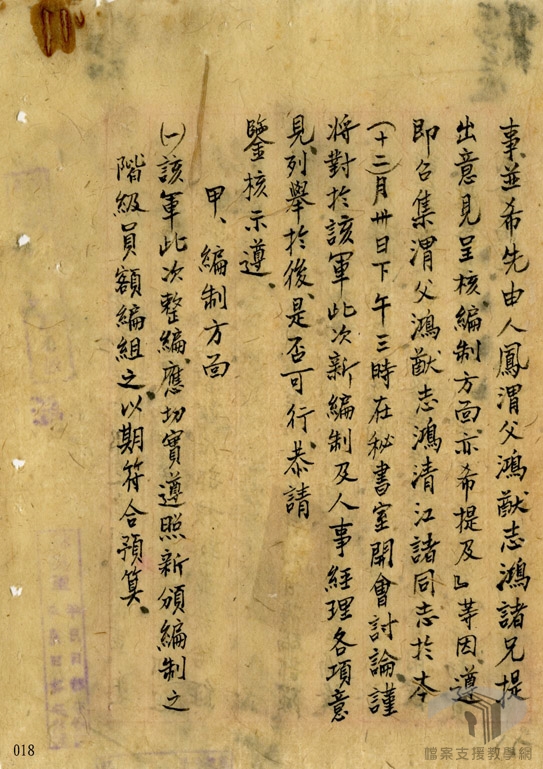 事、並希先由人鳳渭父鴻猷志鴻諸兄提
出意見呈核、編制方面、亦希提及」等因遵
即召集渭父鴻猷志鴻清江諸同志於本
(十二)月卅日下午三時在秘書室開會討論謹
將對於該軍此次新編制及人事經理各項意
見、列舉於後、是否可行、恭請
鑒核示遵、
甲、編制方面
㈠該軍此次整編、應切實遵照新頒編制之
階級員額編組之、以期符合預算、
018
檔案支援教學網